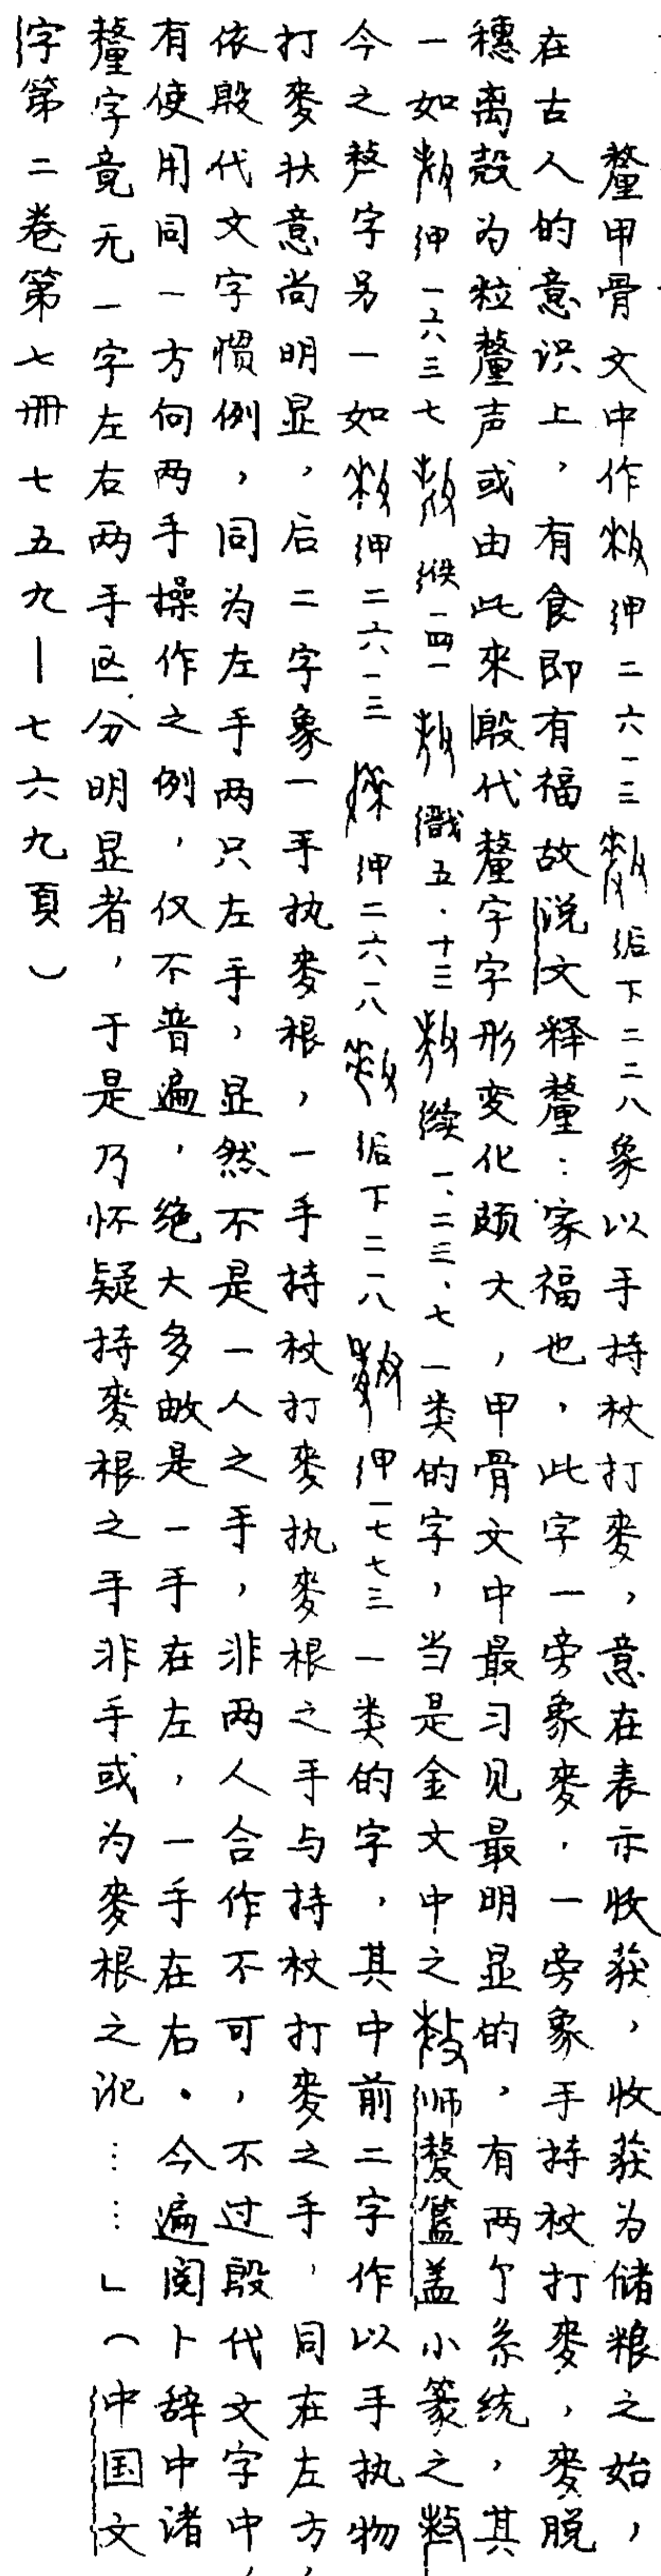 釐甲骨文中作 押二六一三 后下二二八象以手持杖打麥，意在表示收获，收获为储粮之始，
在古人的意识上，有食即有福故说文释釐：家福也，此字一旁象麥，一旁象手持杖打麥，麥脱
穗离殻为粒釐声或由此来殷代釐字字形变化颇大，甲骨文中最习见最明显的，有两个系统，其
一如 押一六三七 佚一四一 戬五·十三 续一、二三、七一类的字，当是金文中之 师 簋盖小篆之
今之 字另一如 押二六一三 押二六一八 后下二一八 押一七七三一类的字，其中前二字作以手执物
打麥状意尚明显，后二字象一手执麥根，一手持杖打麥执麥根之手与持杖打麥之手，同在左方，
依殷代文字惯例，同为左手两只左手，显然不是一人之手，非两人合作不可，不过殷代文字中
有使用同一方向两手操作之例，仅不普遍，绝大多数是一手在左，一手在右。今遍阅卜辞中诸
釐字竟无一字左右两手区分明显者，于是乃怀疑持麥根之手非手或为麥根之讹……」（中国文
字第二卷第七冊七五九—七六九頁）